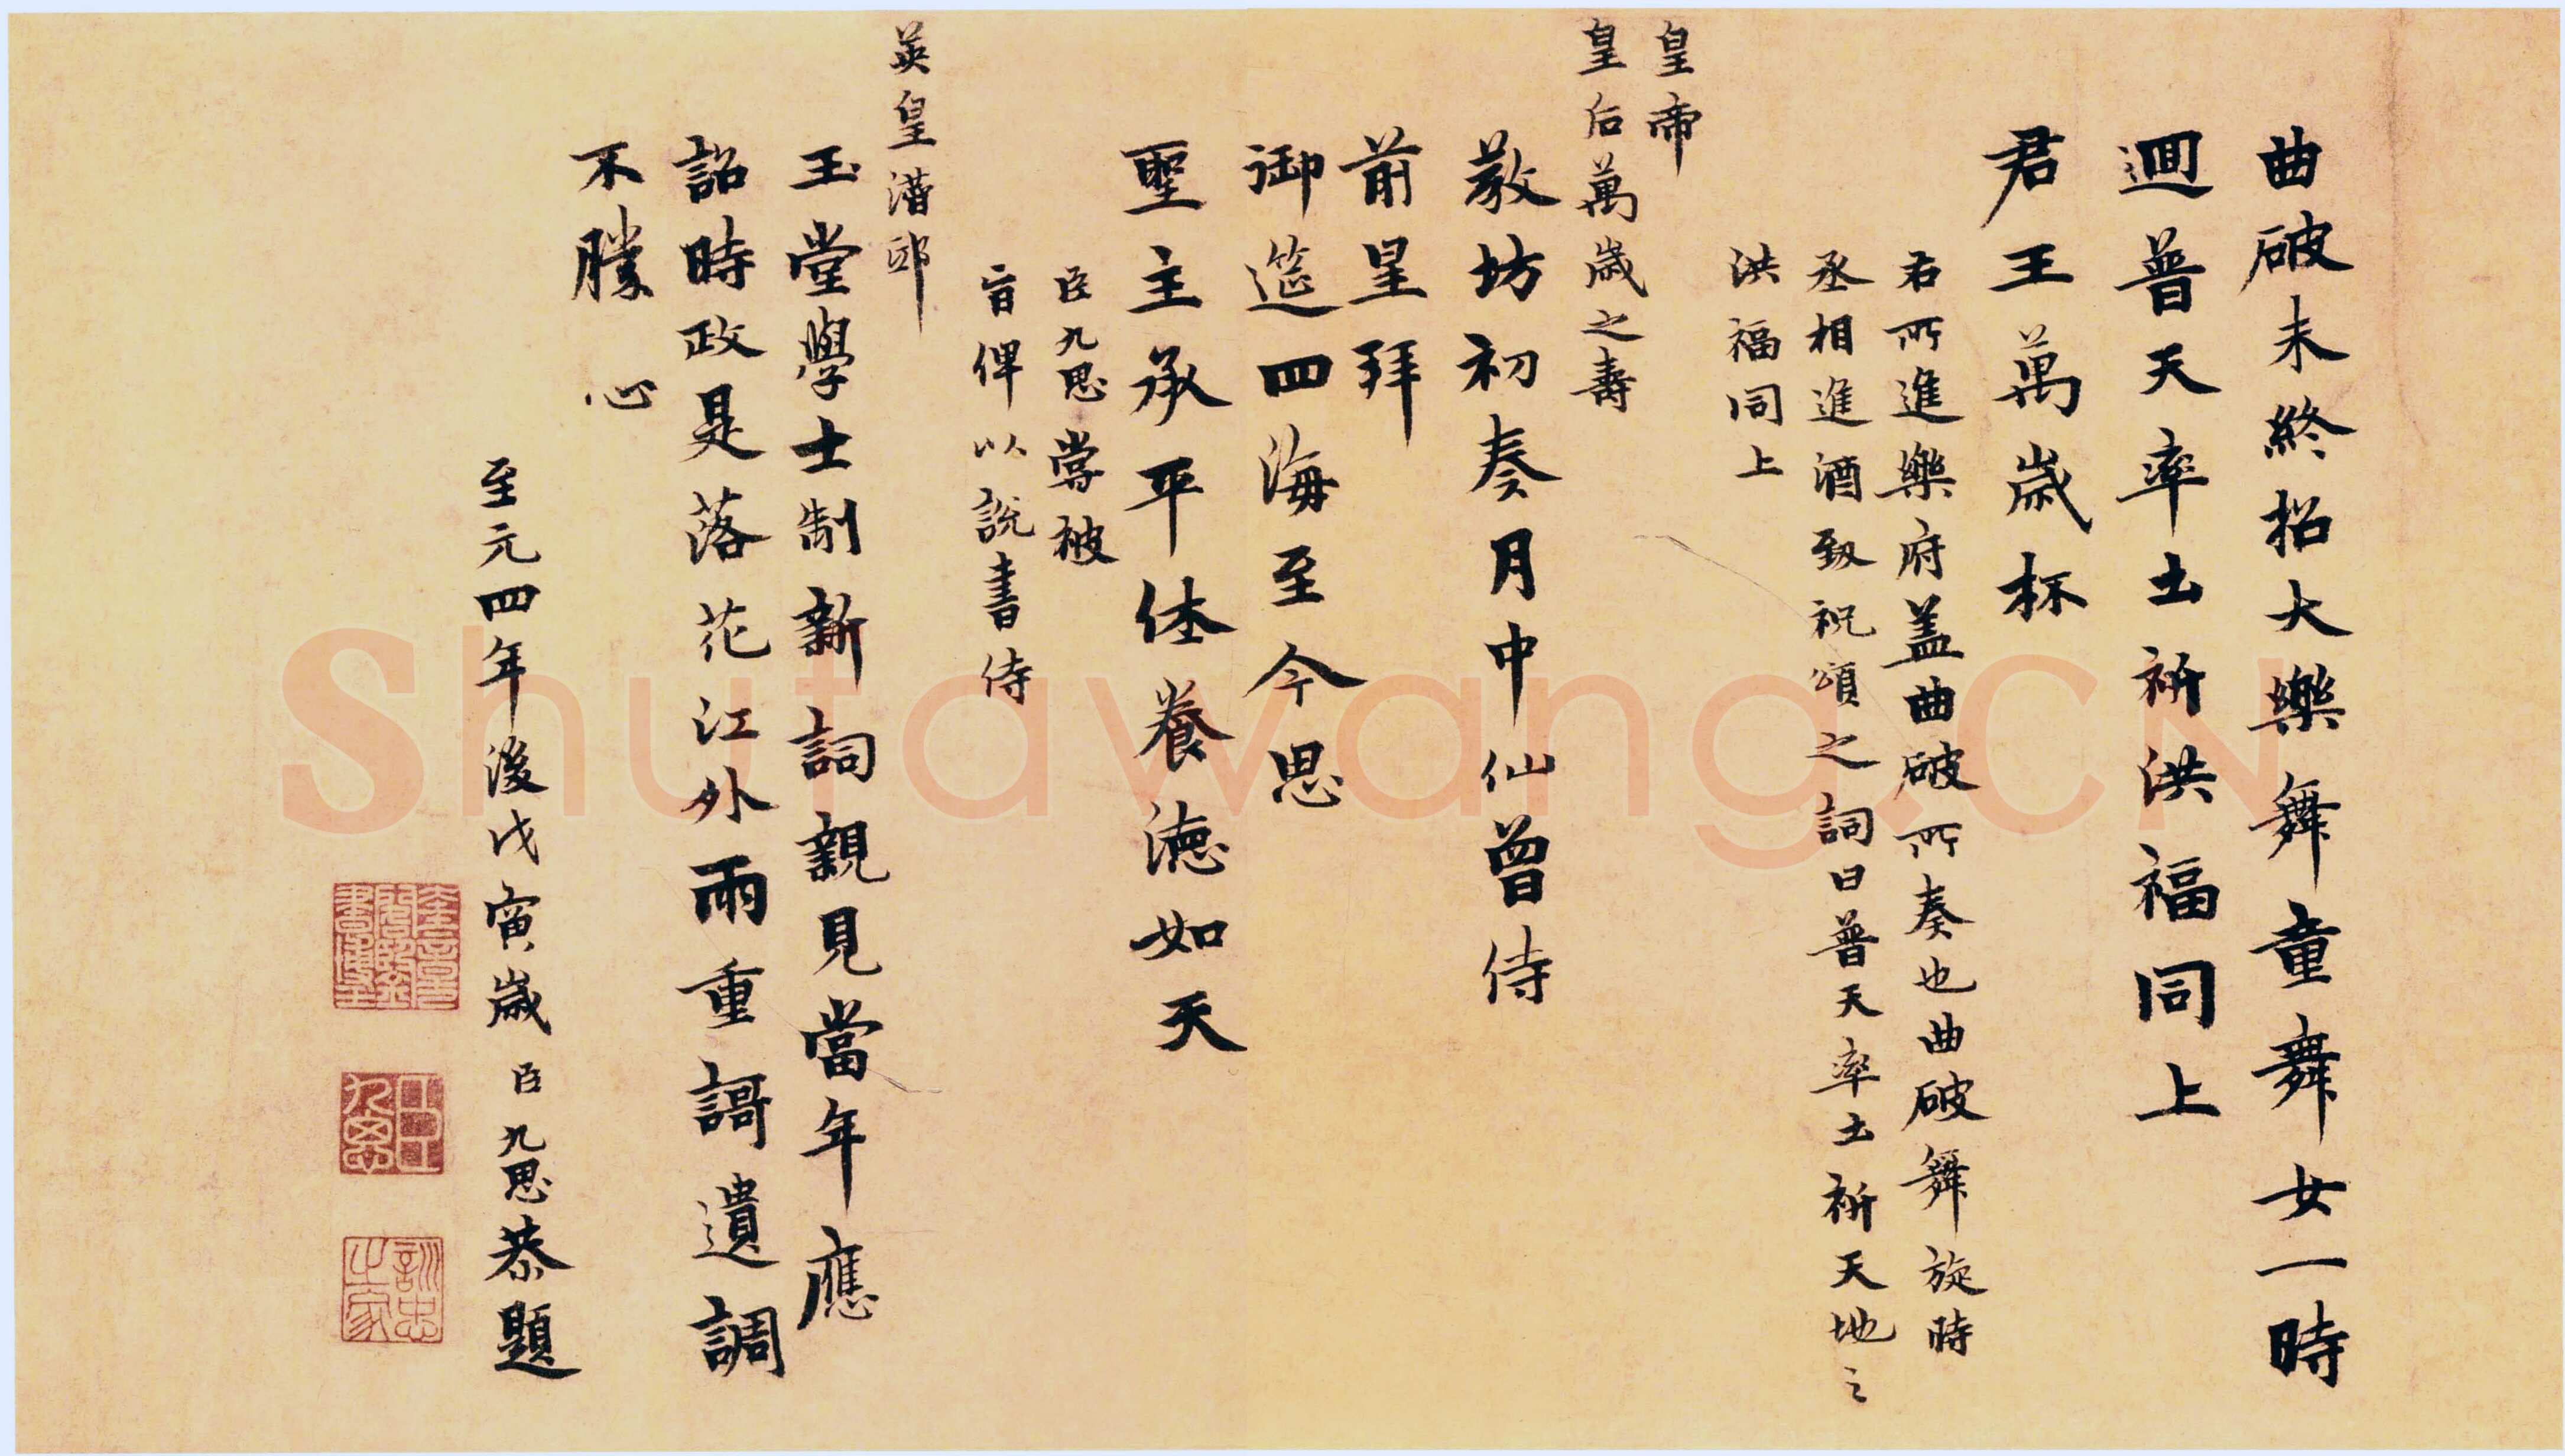 曲破未終招大樂舞童舞女一時
迴普天率土祈洪福同上
君王萬歲杯
右所進樂府蓋曲破所奏也曲破舞旋時
丞相進酒致祝頌之詞曰普天率土祈天地之
洪福同上
皇帝
皇后萬歲之壽
教坊初奏月中仙曾侍
前星拜
御筵四海至今思
聖主承平休養德如天
臣九思嘗被
旨俾以說書侍
英皇潛邸
玉堂學士制新詞親見當年應
詔時政是落花江外雨重謌遺調
不勝心
至元四年後戊寅歲臣九思恭題
奎章閣鑒書博士
臣九思
訓忠之家
Shufawang.CN